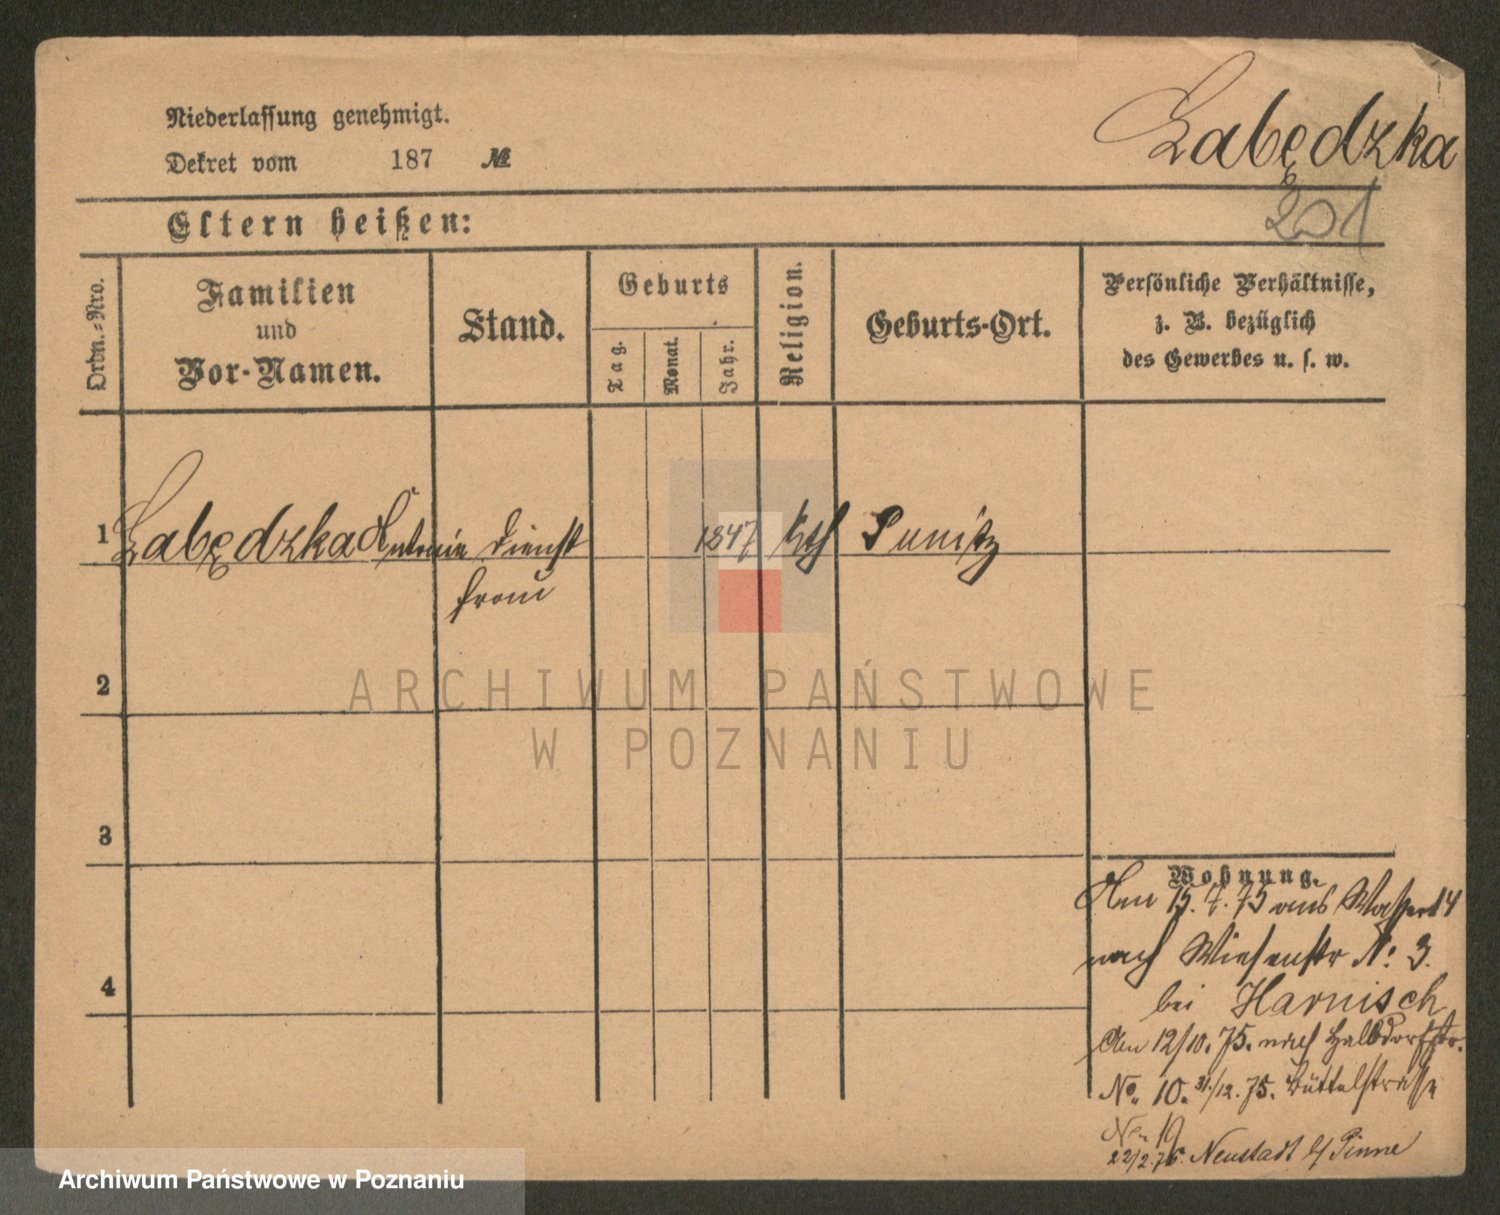 Niederlassung genehmigt.
Dekret vom 187 №
Łabędzka
201
Eltern heißen:
Ordn.-Nro.
Familien
und
Vor-Namen.
Stand.
Geburts
Tag.
Monat.
Jahr.
Religion.
Geburts-Ort.
Persönliche Verhältnisse,
z. B. bezüglich
des Gewerbes u. s. w.
1 Łabędzka Antonie Dienst 1847 Kth Punitz
frau
2
ARCHIWUM PAŃSTWOWE
W POZNANIU
3
Wohnung.
Am 15.7.75 aus Wasserst 4
nach Wiesenstr N: 3.
bei Harnisch
4
Am 12/10.75. nach Halbdorfstr.
No. 10. 31/12.75. Büttelstrasse
No. 19
22/2.76. Neustadt b/ Pinne
Archiwum Państwowe w Poznaniu